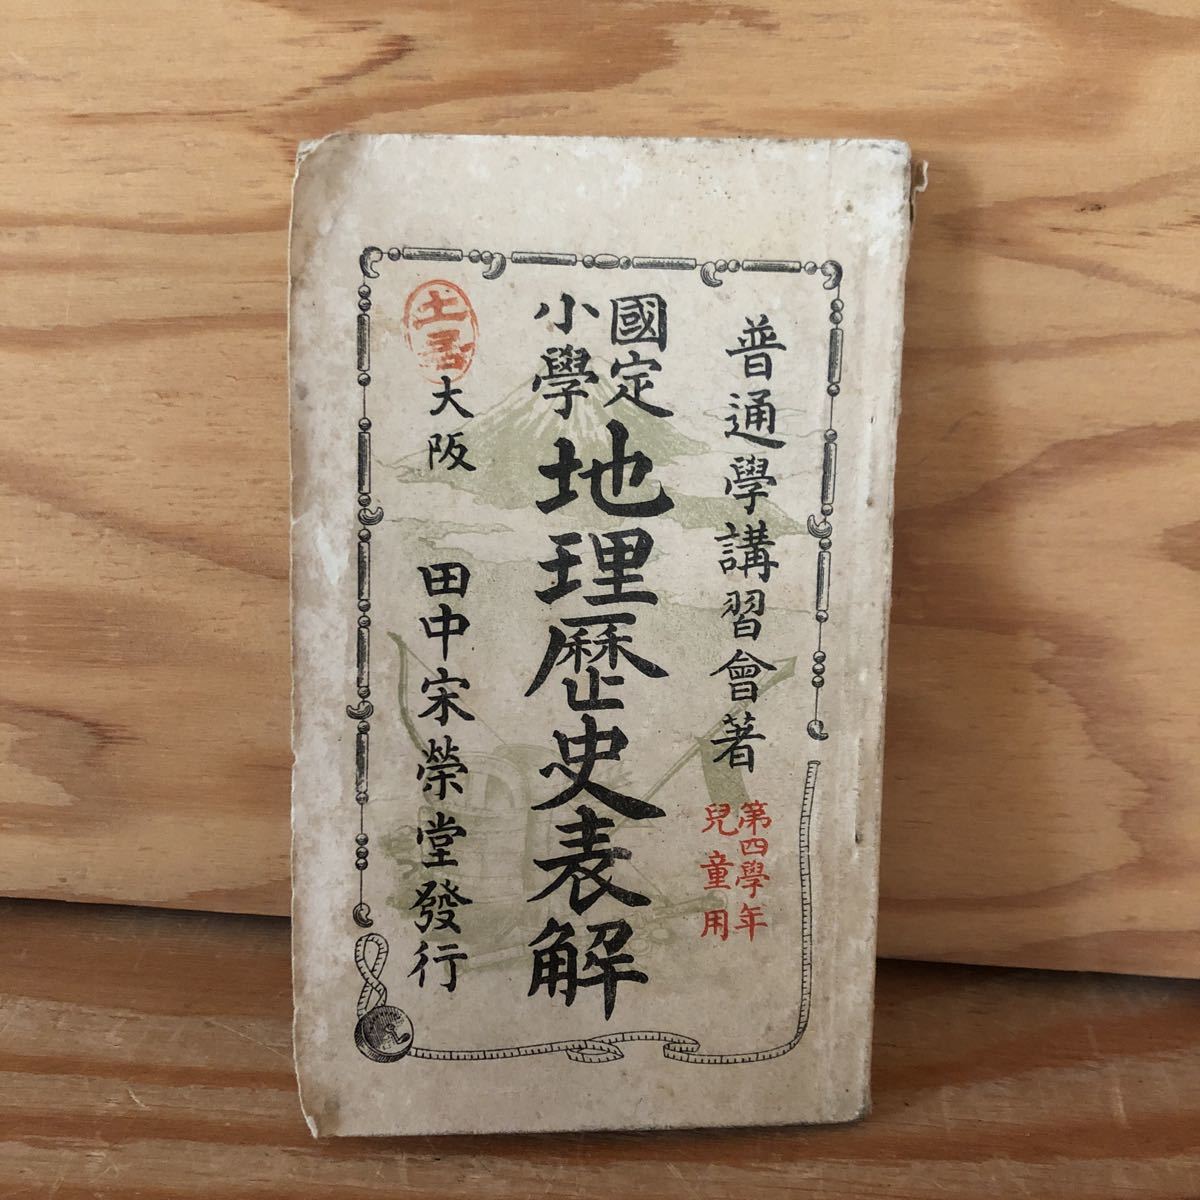 普通學講習會著
第四學年
兒童用
國定
小學
地理歷史表解
大阪 田中宋榮堂發行